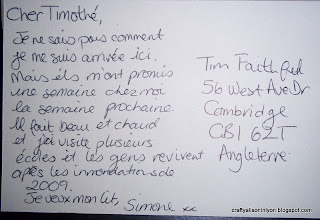 Cher Timothé,
Je ne sais pas comment
je me suis arrivée ici.
Mais ils m'ont promis
une semaine chez moi
la semaine prochaine
Il fait beau et chaud
et j'ai visité plusieurs
écoles et les gens revivent
après les innondations de
2009.
Je veux mon lit, Simone xx
Tim Faithfull
56 West Ave Dr
Cambridge
CB1 6ZT
Angleterre
craftyalisonlnlyon.blogspot.com